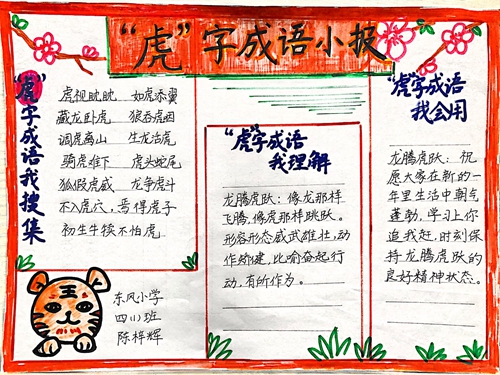 “虎”字成语小报
“虎”字成语我搜集
虎视眈眈 如虎添翼
藏龙卧虎 狼吞虎咽
调虎离山 生龙活虎
骑虎难下 虎头蛇尾
狐假虎威 龙争虎斗
不入虎穴，焉得虎子
初生牛犊不怕虎
东风小学
四(1)班
陈梓辉
“虎”字成语
我理解
龙腾虎跃：像龙那样
飞腾，像虎那样跳跃。
形容形态威武雄壮，动
作矫建，比喻奋起行
动，有所作为。
“虎”字成语
我会用
龙腾虎跃：祝
愿大家在新的一
年里生活中朝气
蓬勃，学习上你
追我赶，时刻保
持龙腾虎跃的
良好精神状态。